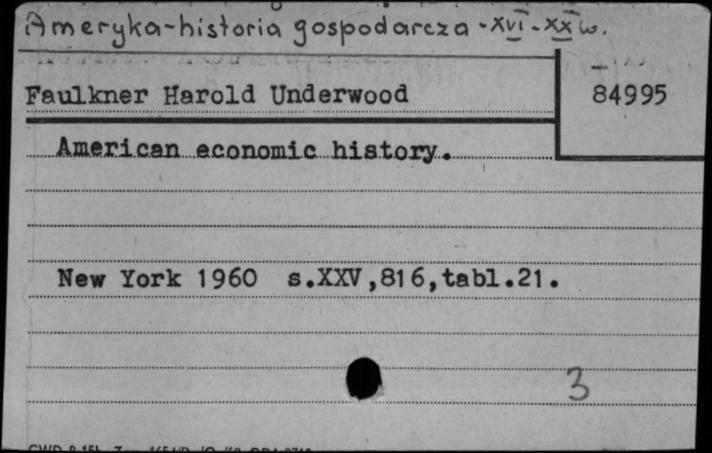 Ameryka-historia gospodarcza - XVI - XX w.
Faulkner Harold Underwood
84995
American economic history.
New York 1960 s.XXV,816,tabl.21.
3